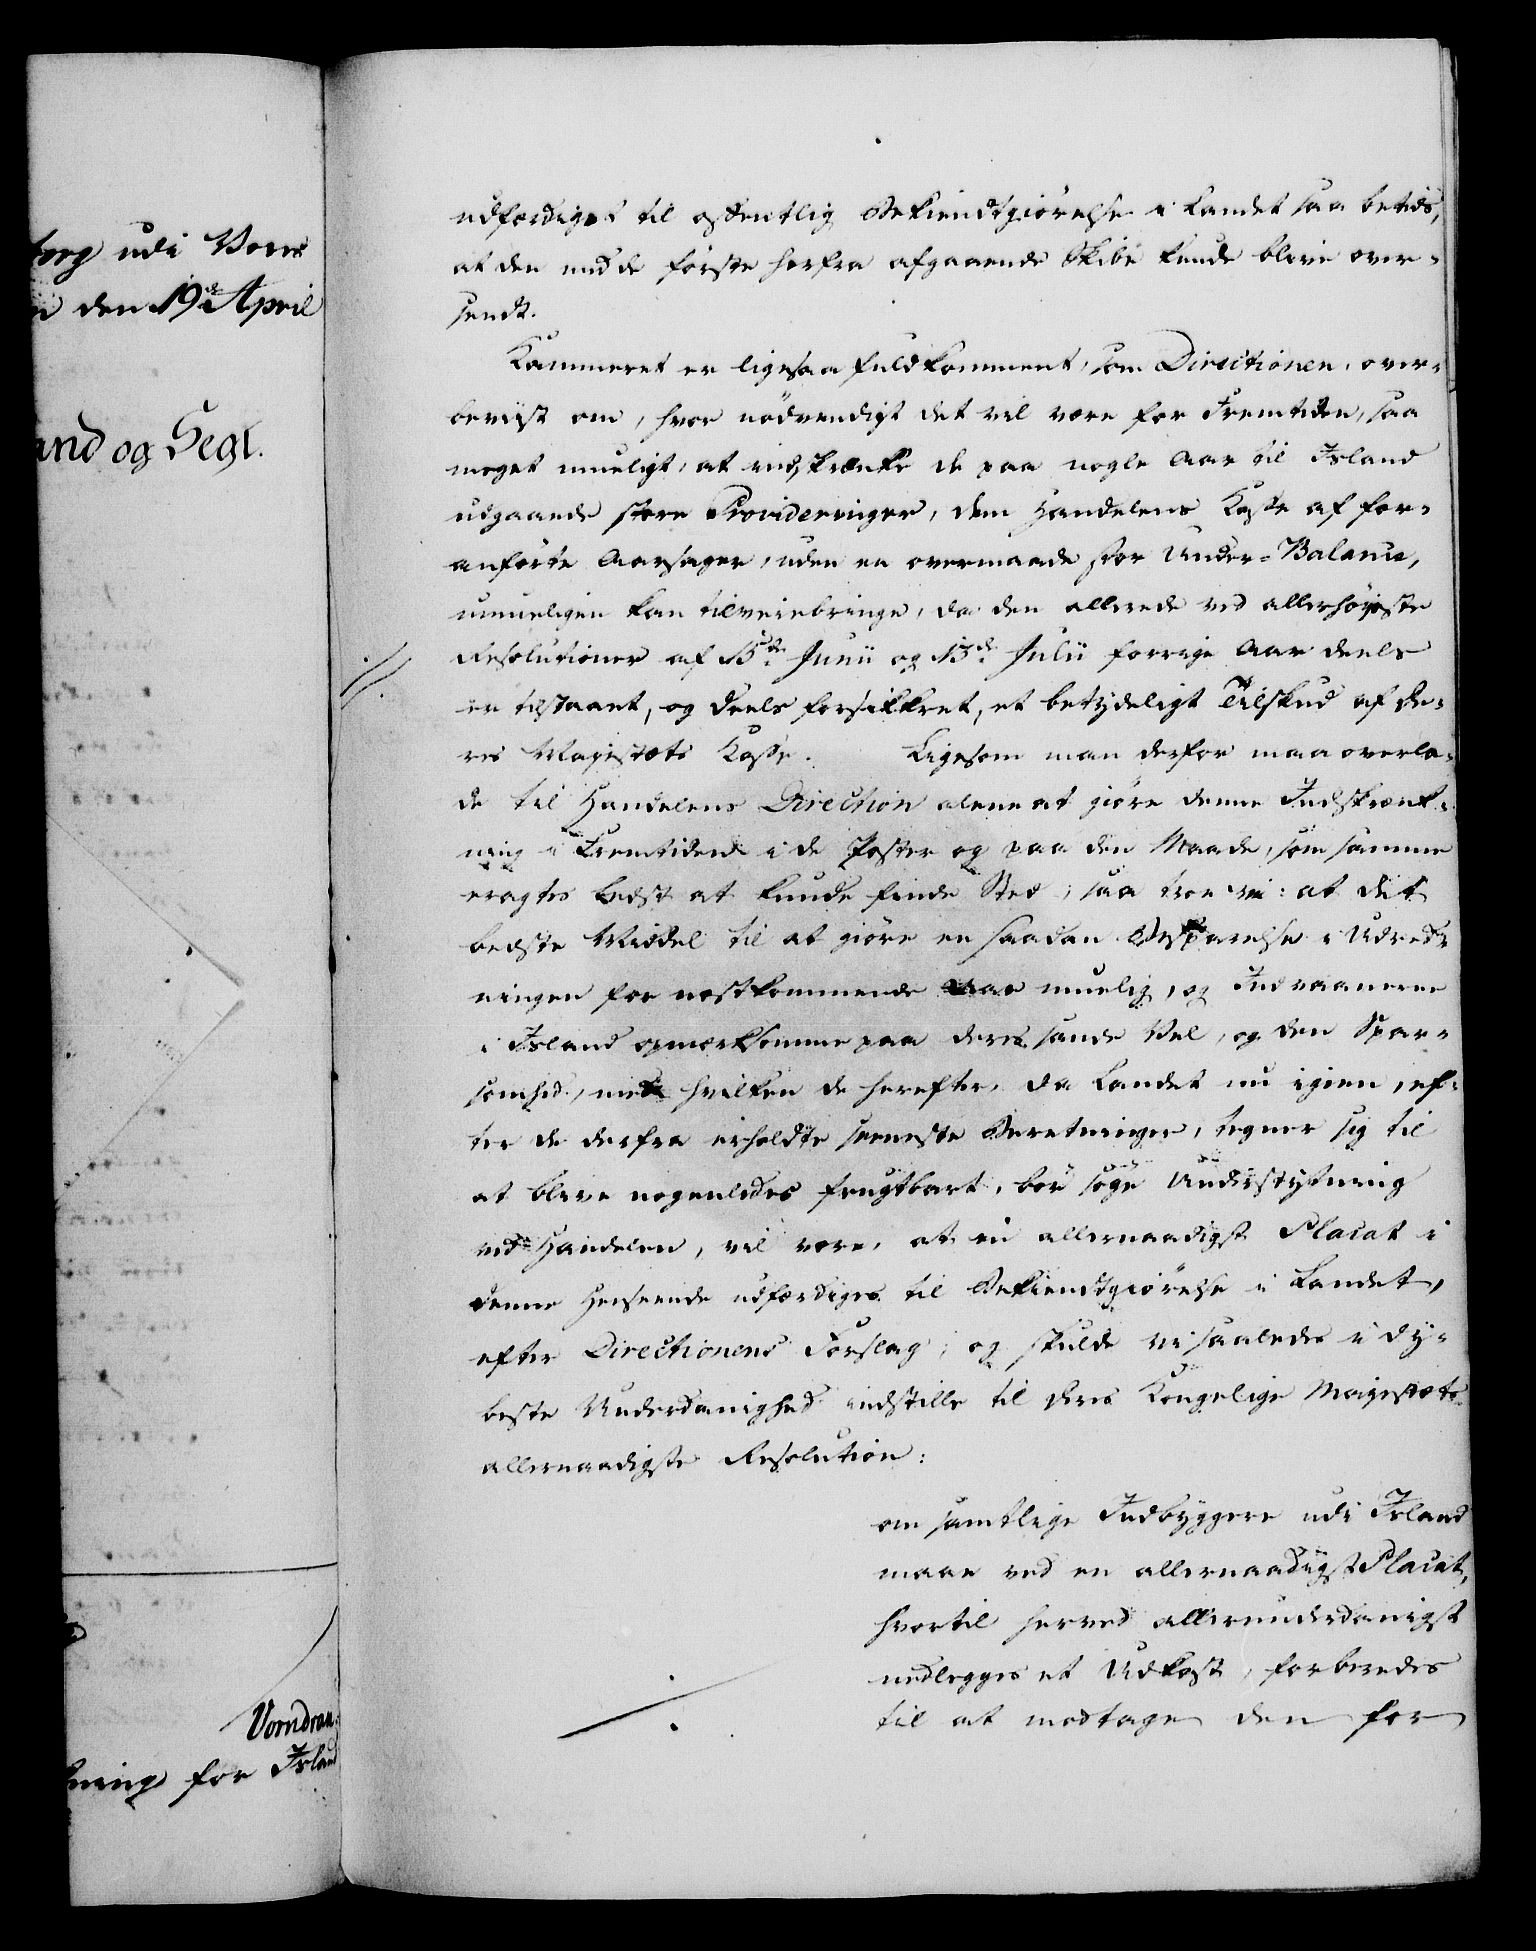 borg udi Vores
den 19de April
and og Segl.
Vorndran
ning for Island
udfærdiget til offentlig Bekiendtgiörelse i Landet saa betids,
at den med de förste herfra afgaaende Skibe kunde blive over-
sendt.
Kammeret er ligesaa fuldkomment, som Directionen, over-
beviist om, hvor nödvendigt det vil være for Fremtiden, saa
meget mueligt, at indskrænke de paa nogle Aar til Island
udgaaende store Provideringer, dem Handelens Kasse af for-
anförte Aarsager, uden en overmaade stor Under-Balance,
umueligen kan tilveiebringe, da den allerede ved allerhöyeste
Resolutioner af 15de Junii og 13de Julii forrige Aar deels
er tilstaaet, og deels forsikkret, et betydeligt Tilskud af De-
res Majestæts Kasse. Ligesom man derfor maa overla-
de til Handelens Direction alene at giöre denne Indskrænk-
ning i Fremtiden i de Poster og paa den Maade, som samme
eragtes bedst at kunde finde Sted; saa troe vi: at det
bedste Middel til at giöre en saadan Besparelse i Udred-
ningen for næstkommende Aar muelig, og Indvaanerne
i Island opmærksomme paa deres sande Vel, og den Spar-
somhed, med hvilken de herefter, da Landet nu igien, ef-
ter de derfra erholdte seeneste Beretninger, tegner sig til
at blive nogenledes frugtbart, bör söge Understytning
ved Handelen, vil være, at en allernaadigst Placat i
denne Henseende udfærdiges til Bekiendtgiörelse i Landet,
efter Directionens Forslag; og skulde vi saaledes i dy-
beste Underdanighed indstille til Deres Kongelige Majestæts
allernaadigste Resolution:
om samtlige Indbyggere udi Island
maae ved en allernaadigst Placat,
hvortil herved allerunderdanigst
nedlegges et Udkast, forberedes
til at modtage den for